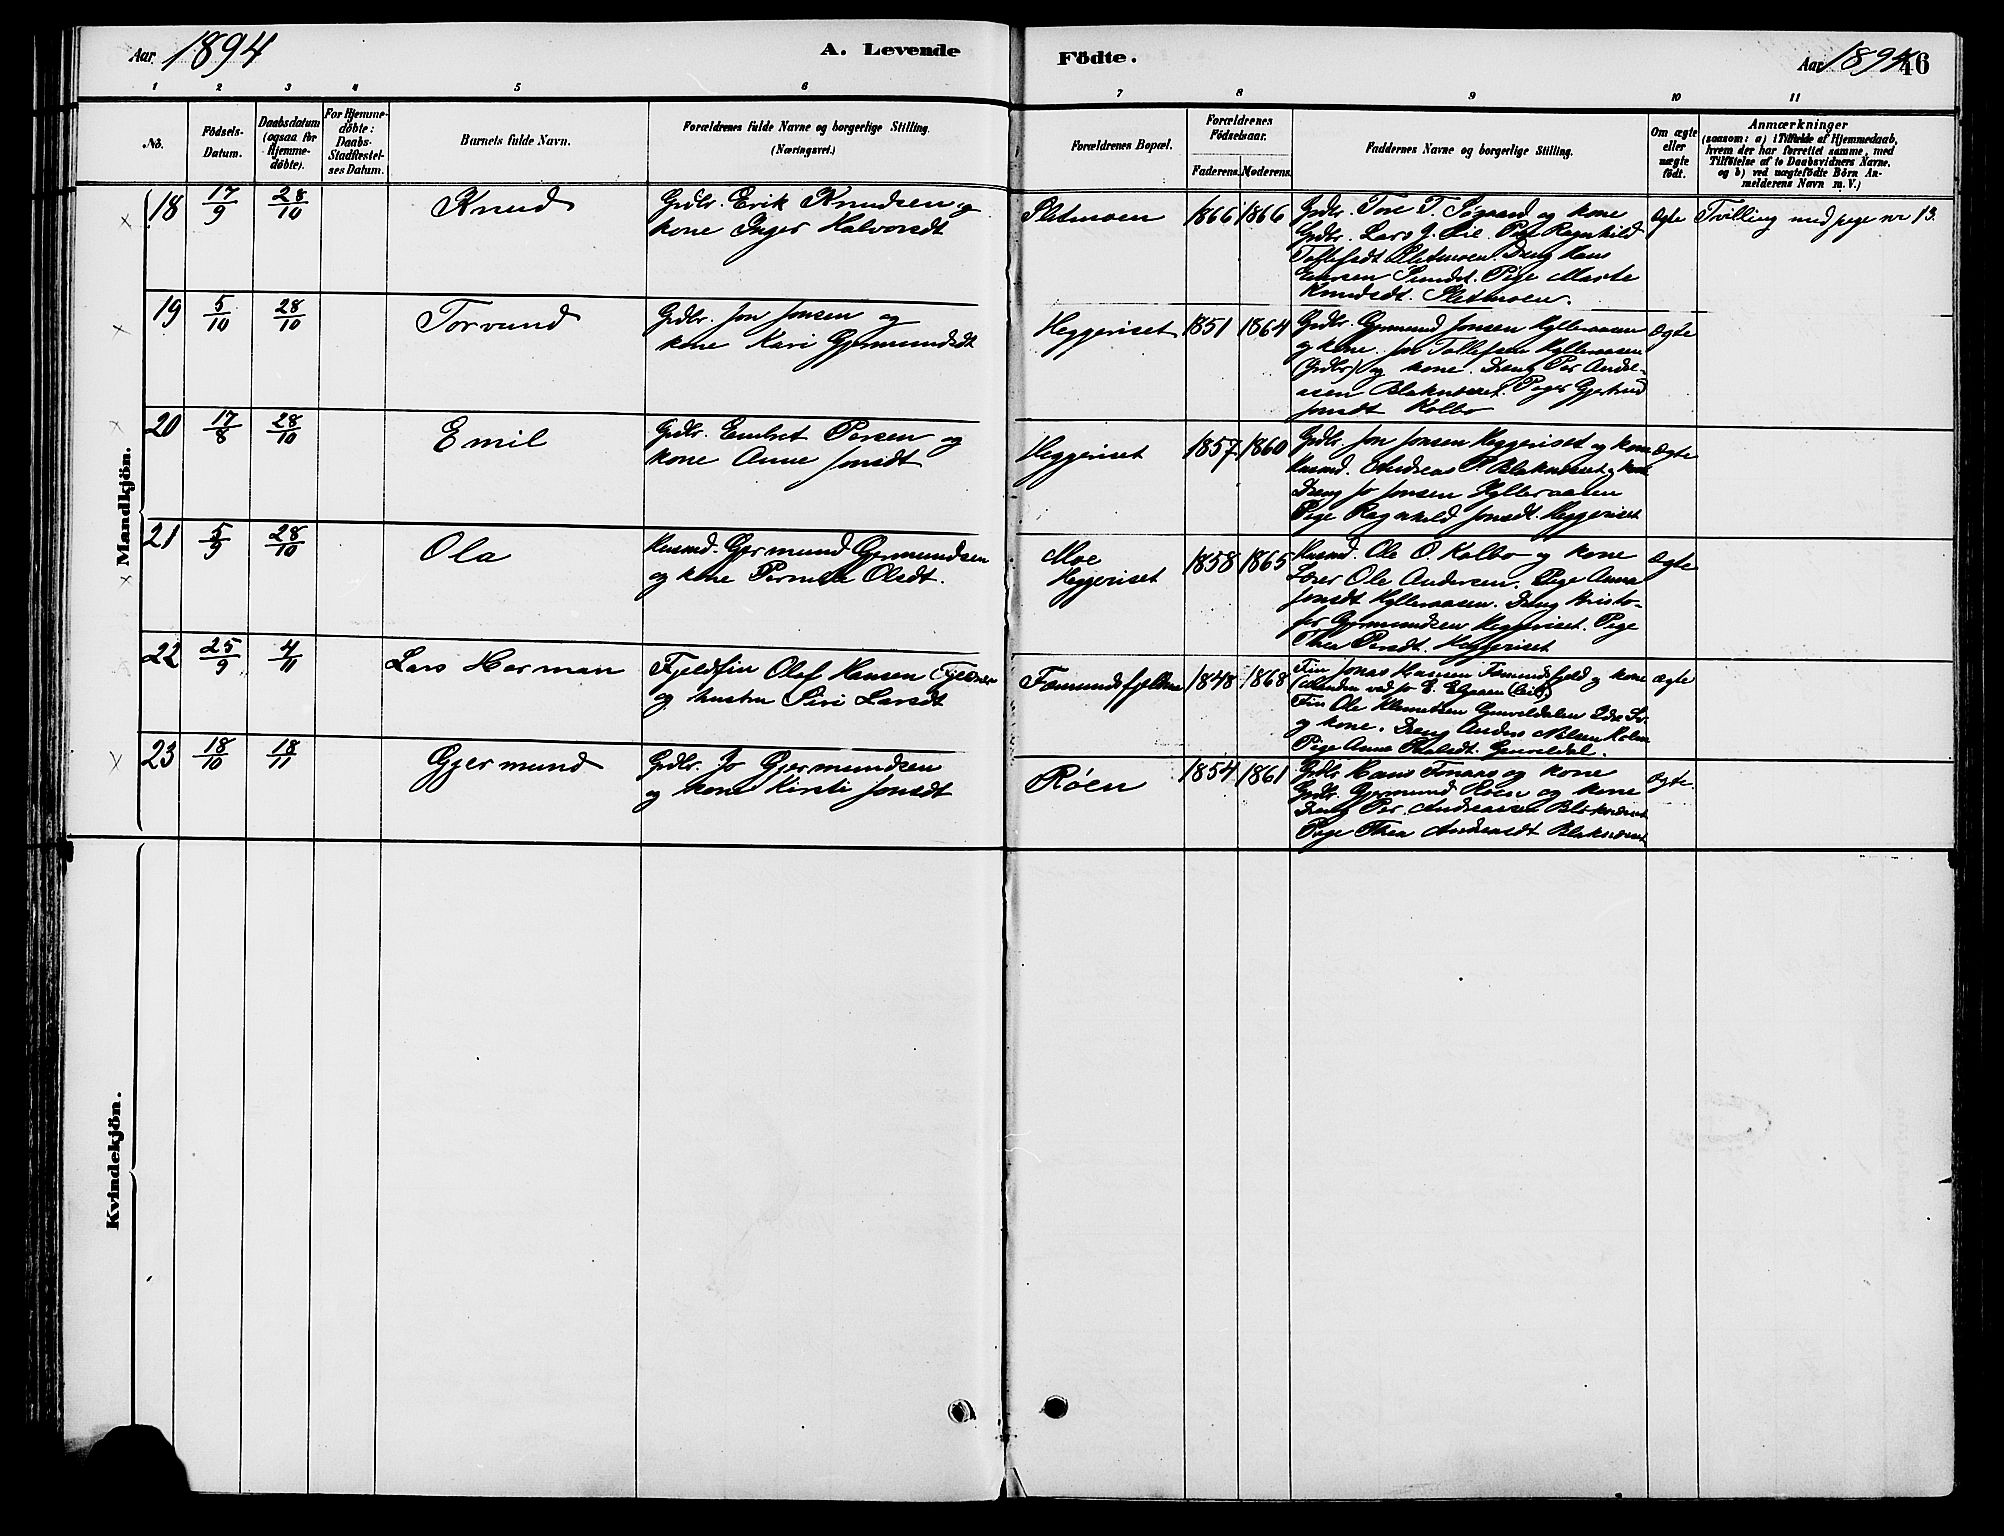 Aar 1894
A. Levende
Födte.
Aar 1894
46
1 2 3 4 5 6 7 8 9 10 11
No.
Födsels-
Datum.
Daabsdatum
(ogsaa for
Hjemme-
döbte).
For Hjemme-
döbte:
Daabs-
Stadfæstel-
ses Datum.
Barnets fulde Navn.
Forældrenes fulde Navne og borgerlige Stilling.
(Næringsvei.)
Forældrenes Bopæl.
Forældrenes
Födselsaar.
Faderens. Moderens.
Faddernes Navne og borgerlige Stilling.
Om ægte
eller
uægte
födt.
Anmærkninger
(saasom: a) i Tilfælde af Hjemmedaab,
hvem der har forrettet samme, med
Tilföielse af to Daabsvidners Navne,
og b) ved uægtefödte Börn An-
melderens Navn m. V.)
Mandkjön.
18 17/9 28/10 Knud
Grdbr. Erik Knudsen og
kone Inger Halvorsdt
Sletmoen 1866 1866
Grdbr. Tore T. Søgaard og kone
Grdbr. Lars J. Pige Ragnhild
Tollefsdt Sletmoen. Dreng Hans
Sundet. Pige Marte
Knudsdt. Sletmoen.
ægte
Tvilling med pige nr 13.
19 5/10 28/10 Torvund
Grdbr. Jon Jonsen og
kone Kari Gjermundsdt
Heggeriset 1851 1864
Grdbr. Gjermund Jonsen Hylleraasen
og kone. Jon Tollefsen Hylleraasen
(Grdbr) og kone. Dreng Per Andre-
asen Blakneset. Pige Gjertrud
Jonsdt Kolbo
ægte
20 17/8 28/10 Emil
Grdbr. Embret Persen og
kone Anne Jonsdt
Heggeriset 1857 1860
Grdbr. Jon Jonsen Heggeriset og kone
Husmd. Andreas P. Blakneset og kone
Dreng Jo Jonsen Hylleraasen
Pige Ragnhild Jonsdt. Heggeriset
ægte
21 5/9 28/10 Ola
Husmd. Gjermund Gjermundsen
og kone Pernille Olsdt.
Moe
Heggeriset
1858 1865
Husmd. Ole O. Kolbo og kone
Lærer Ole Andersen. Pige Anna
Jonsdt Hylleraasen. Dreng Kristo-
fer Gjermundsen Heggeriset. Pige
Thea Persdt. Heggeriset
ægte
22 25/9 4/11 Lars Herman
Fjeldfin Olaf Hansen
og hustru Siri Larsdt
Fæmundsfjeldene 1848 1868
Fin Jonas Hansen Fæmundsfjeld og kone
Fin Ole Klemetsen
og kone. Dreng Anders Nilsen
Pige Anna
ægte
23 18/10 18/11 Gjermund
Grdbr. Jo Gjermundsen
og kone Kirsti Jonsdt
Røen 1854 1861
Grdbr Hans og kone
Grdbr. Gjermund Røen og kone
Dreng Per Andreasen Blakneset
Pige Thea Andreasdt Blakneset
ægte.
Kvindekjön.